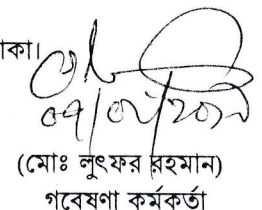 াকা।
(মোঃ লুৎফর রহমান)
গবেষণা কর্মকর্তা